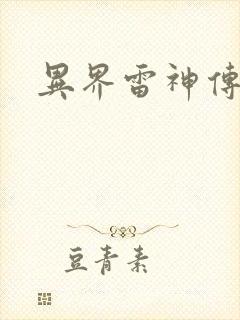 異界雷神傳
豆青素